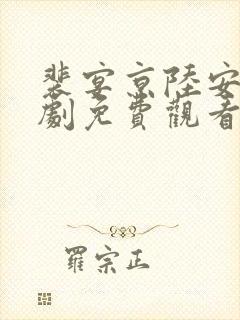 裴宴京陸安
劇免費觀看
羅宗正